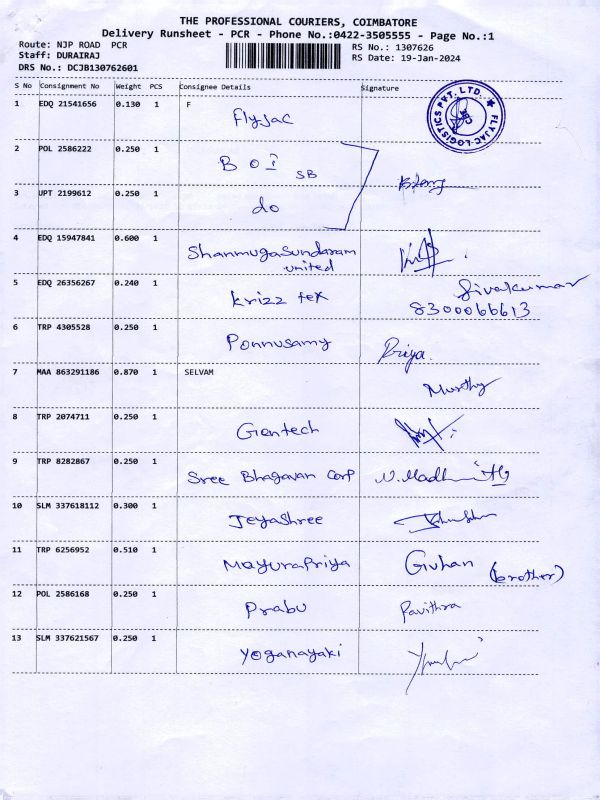 THE PROFESSIONAL COURIERS, COIMBATORE
Delivery Runsheet - PCR - Phone No.:0422-3505555 - Page No.:1
Route: NJP ROAD PCR
Staff: DURAIRAJ
DRS No.: DCJB130762601
RS No.: 1307626
RS Date: 19-Jan-2024
S No Consignment No Weight PCS Consignee Details Signature
1 EDQ 21541656 0.130 1 F
Flyjac
FLYJAC LOGISTICS PVT. LTD.
2 POL 2586222 0.250 1
BOI SB
3 UPT 2199612 0.250 1
do
4 EDQ 15947841 0.600 1
Shanmugasundaram
united
5 EDQ 26356267 0.240 1
krizz tex
Sivakumar
8300066613
6 TRP 4305528 0.250 1
Ponnusamy Priya.
7 MAA 863291186 0.870 1 SELVAM
Murthy
8 TRP 2074711 0.250 1
Gentech
9 TRP 8282867 0.250 1
Sree Bhagavan Corp
10 SLM 337618112 0.300 1
Jeyashree
11 TRP 6256952 0.510 1
MayuraPriya Guhan (brother)
12 POL 2586168 0.250 1
Prabu Pavithra
13 SLM 337621567 0.250 1
Yoganayaki